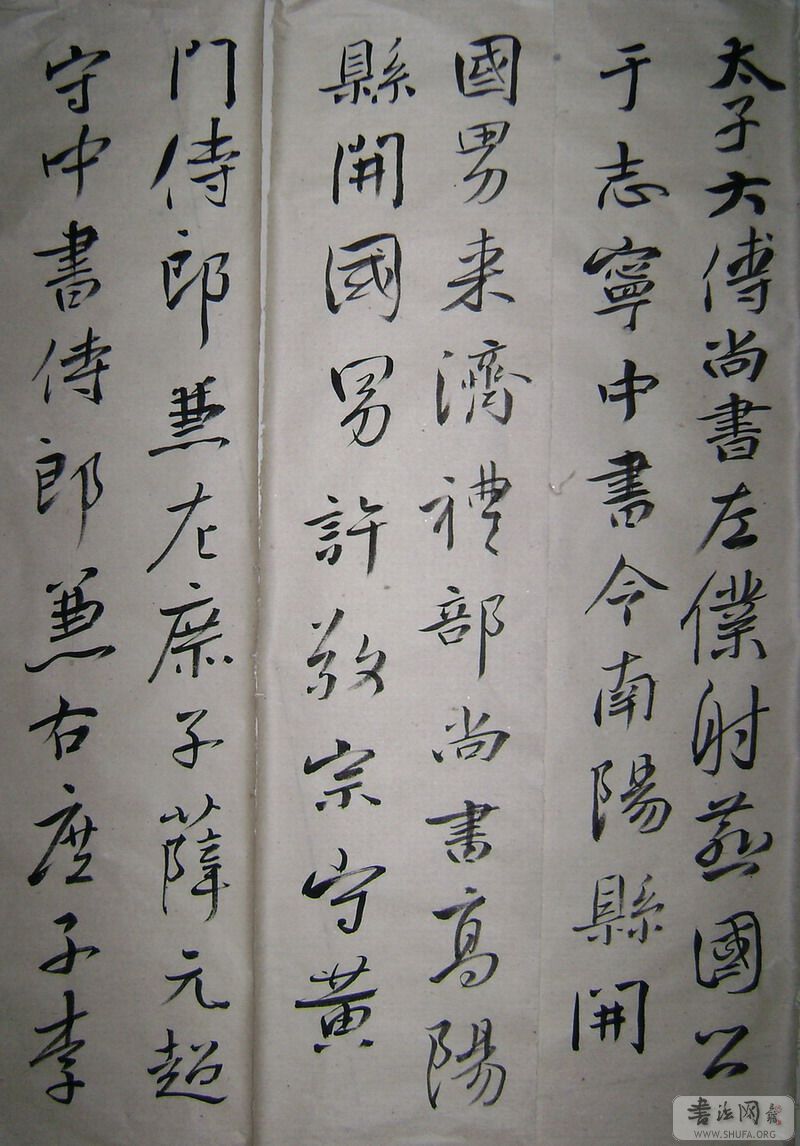 太子大傅尚書左僕射燕國公
于志寧中書令南陽縣開
國男来濟禮部尚書高陽
縣開國男許敬宗守黃
門侍郎兼左庶子薛元超
守中書侍郎兼右庶子李
書法网
WWW.SHUFA.ORG